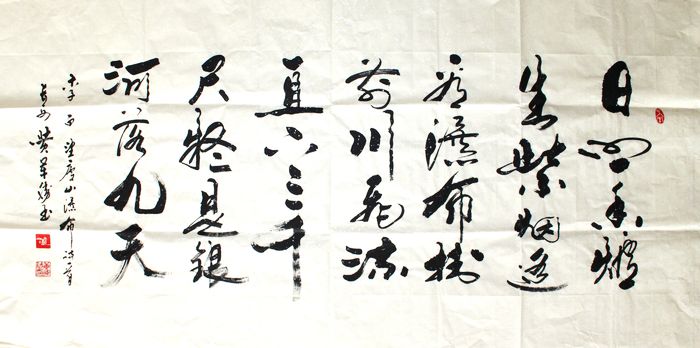 日照香爐
生紫烟遥
看瀑布挂
前川飛流
直下三千
尺疑是銀
河落九天
李白望廬山瀑布詩